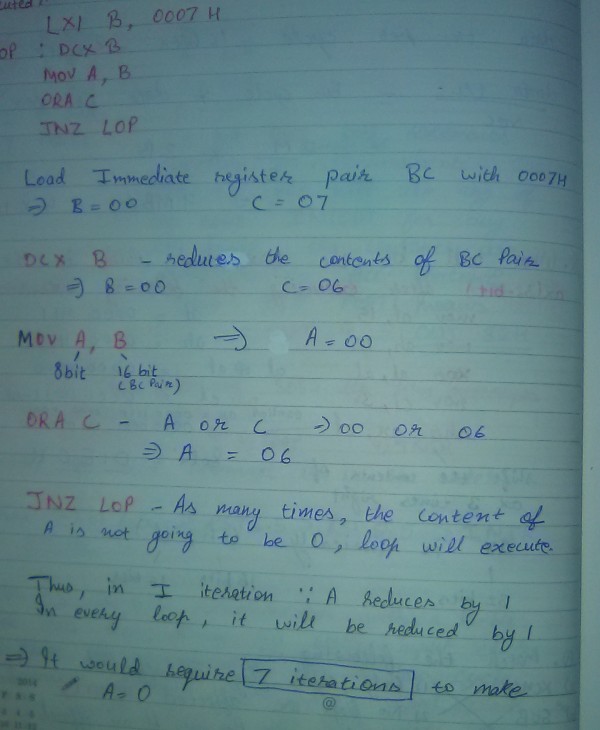 LXI B, 0007 H
OP : DCX B
MOV A, B
ORA C
JNZ LOP
Load Immediate register pair BC with 0007H
⇒ B = 00 C = 07
DCX B - reduces the contents of BC Pair
⇒ B = 00 C = 06
MOV A, B ⇒ A = 00
8bit 16 bit
(BC Pair)
ORA C - A or C ⇒ 00 or 06
⇒ A = 06
JNZ LOP - As many times, the content of
A is not going to be 0, loop will execute.
Thus, in I iteration ∵ A reduces by 1
In every loop, it will be reduced by 1
⇒ It would require 7 iterations to make
A = 0
@